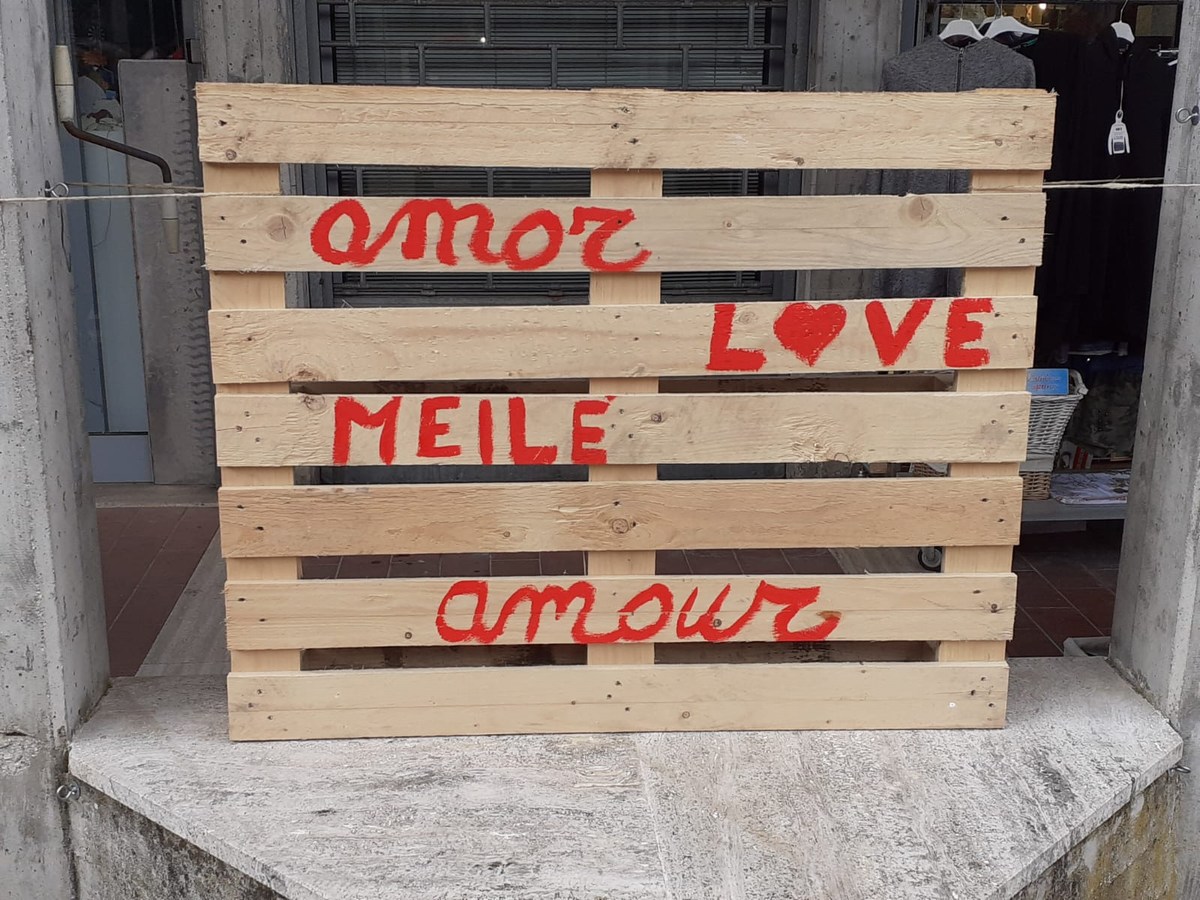 amor
L♥VE
MEILĖ
amour